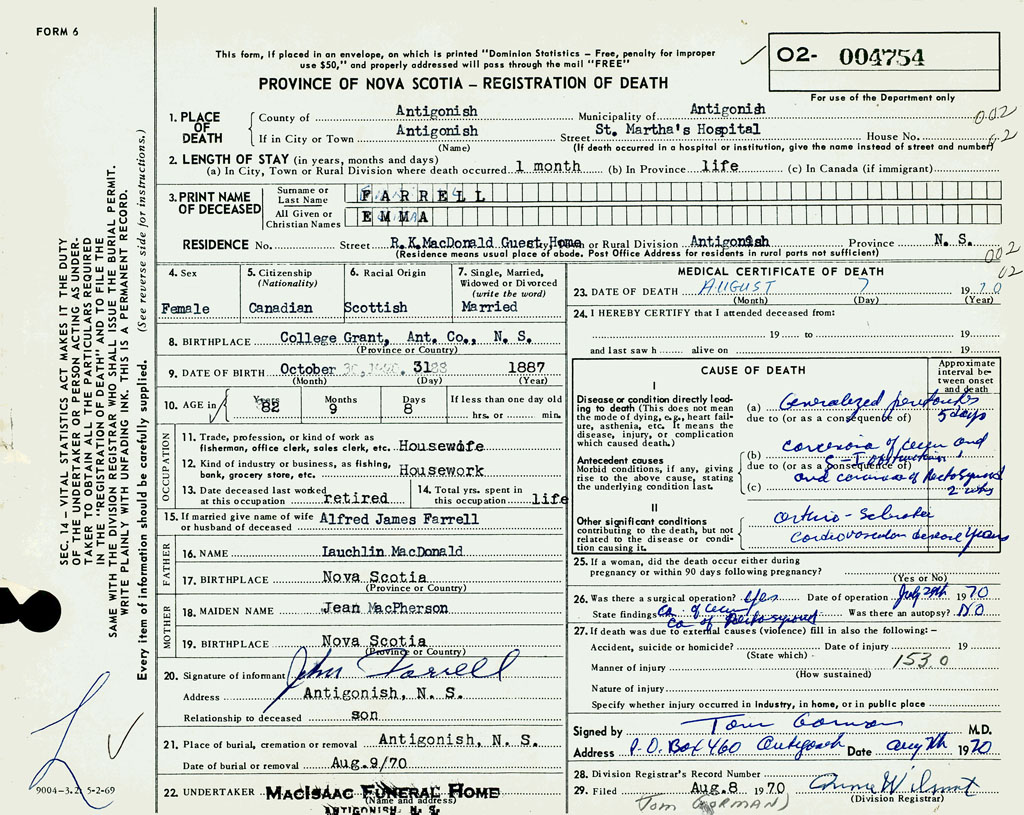 FORM 6
This form, if placed in an envelope, on which is printed "Dominion Statistics – Free, penalty for improper
use $50," and properly addressed will pass through the mail "FREE"
O2- 004754
PROVINCE OF NOVA SCOTIA – REGISTRATION OF DEATH
For use of the Department only
1. PLACE OF DEATH
County of Antigonish Municipality of Antigonish
002
If in City or Town Antigonish Street St. Martha's Hospital House No.
(Name) (If death occurred in a hospital or institution, give the name instead of street and number)
2. LENGTH OF STAY (in years, months and days)
(a) In City, Town or Rural Division where death occurred 1 month (b) In Province life (c) In Canada (if immigrant)
3. PRINT NAME OF DECEASED
Surname or Last Name FARRELL
All Given or Christian Names EMMA
RESIDENCE No. Street R.K.MacDonald Guest Home or Rural Division Antigonish Province N. S.
(Residence means usual place of abode. Post Office Address for residents in rural parts not sufficient)
002
02
4. Sex Female
5. Citizenship (Nationality) Canadian
6. Racial Origin Scottish
7. Single, Married, Widowed or Divorced (write the word) Married
8. BIRTHPLACE College Grant, Ant. Co., N. S.
(Province or Country)
9. DATE OF BIRTH October 31 1887
(Month) (Day) (Year)
10. AGE in Years 82 Months 9 Days 8 If less than one day old hrs. or min.
OCCUPATION
11. Trade, profession, or kind of work as fisherman, office clerk, sales clerk, etc. Housewife
12. Kind of industry or business, as fishing, bank, grocery store, etc. Housework
13. Date deceased last worked at this occupation retired
14. Total yrs. spent in this occupation life
15. If married give name of wife or husband of deceased Alfred James Farrell
FATHER
16. NAME Lauchlin MacDonald
17. BIRTHPLACE Nova Scotia
(Province or Country)
MOTHER
18. MAIDEN NAME Jean MacPherson
19. BIRTHPLACE Nova Scotia
(Province or Country)
20. Signature of informant John Farrell
Address Antigonish, N. S.
Relationship to deceased son
21. Place of burial, cremation or removal Antigonish, N. S.
Date of burial or removal Aug.9/70
22. UNDERTAKER MacIsaac Funeral Home
(Name and address)
ANTIGONISH, N. S.
MEDICAL CERTIFICATE OF DEATH
23. DATE OF DEATH AUGUST 7 1970
(Month) (Day) (Year)
24. I HEREBY CERTIFY that I attended deceased from:
19 to 19
and last saw h alive on 19
CAUSE OF DEATH
Approximate interval between onset and death
I
Disease or condition directly leading to death (This does not mean the mode of dying, e.g., heart failure, asthenia, etc. It means the disease, injury, or complication which caused death.)
(a) Generalized peritonitis 5 days
due to (or as a consequence of)
Antecedent causes
Morbid conditions, if any, giving rise to the above cause, stating the underlying condition last.
(b) carcinoma of cecum and
due to (or as a consequence of)
(c) and carcinoma of Rectosigmoid
II
Other significant conditions contributing to the death, but not related to the disease or condition causing it.
cardiovascular disease years
25. If a woman, did the death occur either during pregnancy or within 90 days following pregnancy?
(Yes or No)
26. Was there a surgical operation? Yes Date of operation July 29th 1970
State findings Ca. of cecum Was there an autopsy? NO
Ca of Rectosigmoid
27. If death was due to external causes (violence) fill in also the following: –
Accident, suicide or homicide? Date of injury 19
(State which)
Manner of injury 1530
(How sustained)
Nature of injury
Specify whether injury occurred in industry, in home, or in public place
Signed by Tom Gorman M.D.
Address P.O. Box 460 Antigonish Date Aug 7th 1970
28. Division Registrar's Record Number
29. Filed Aug.8 1970
(Division Registrar)
(TOM GORMAN)
SEC. 14 – VITAL STATISTICS ACT MAKES IT THE DUTY
OF THE UNDERTAKER OR PERSON ACTING AS UNDER-
TAKER TO OBTAIN ALL THE PARTICULARS REQUIRED
IN THE "REGISTRATION OF DEATH" AND TO FILE THE
SAME WITH THE DIVISION REGISTRAR WHO SHALL ISSUE THE BURIAL PERMIT.
WRITE PLAINLY WITH UNFADING INK. THIS IS A PERMANENT RECORD.
Every item of information should be carefully supplied. (See reverse side for instructions.)
9004-3.2: 5-2-69